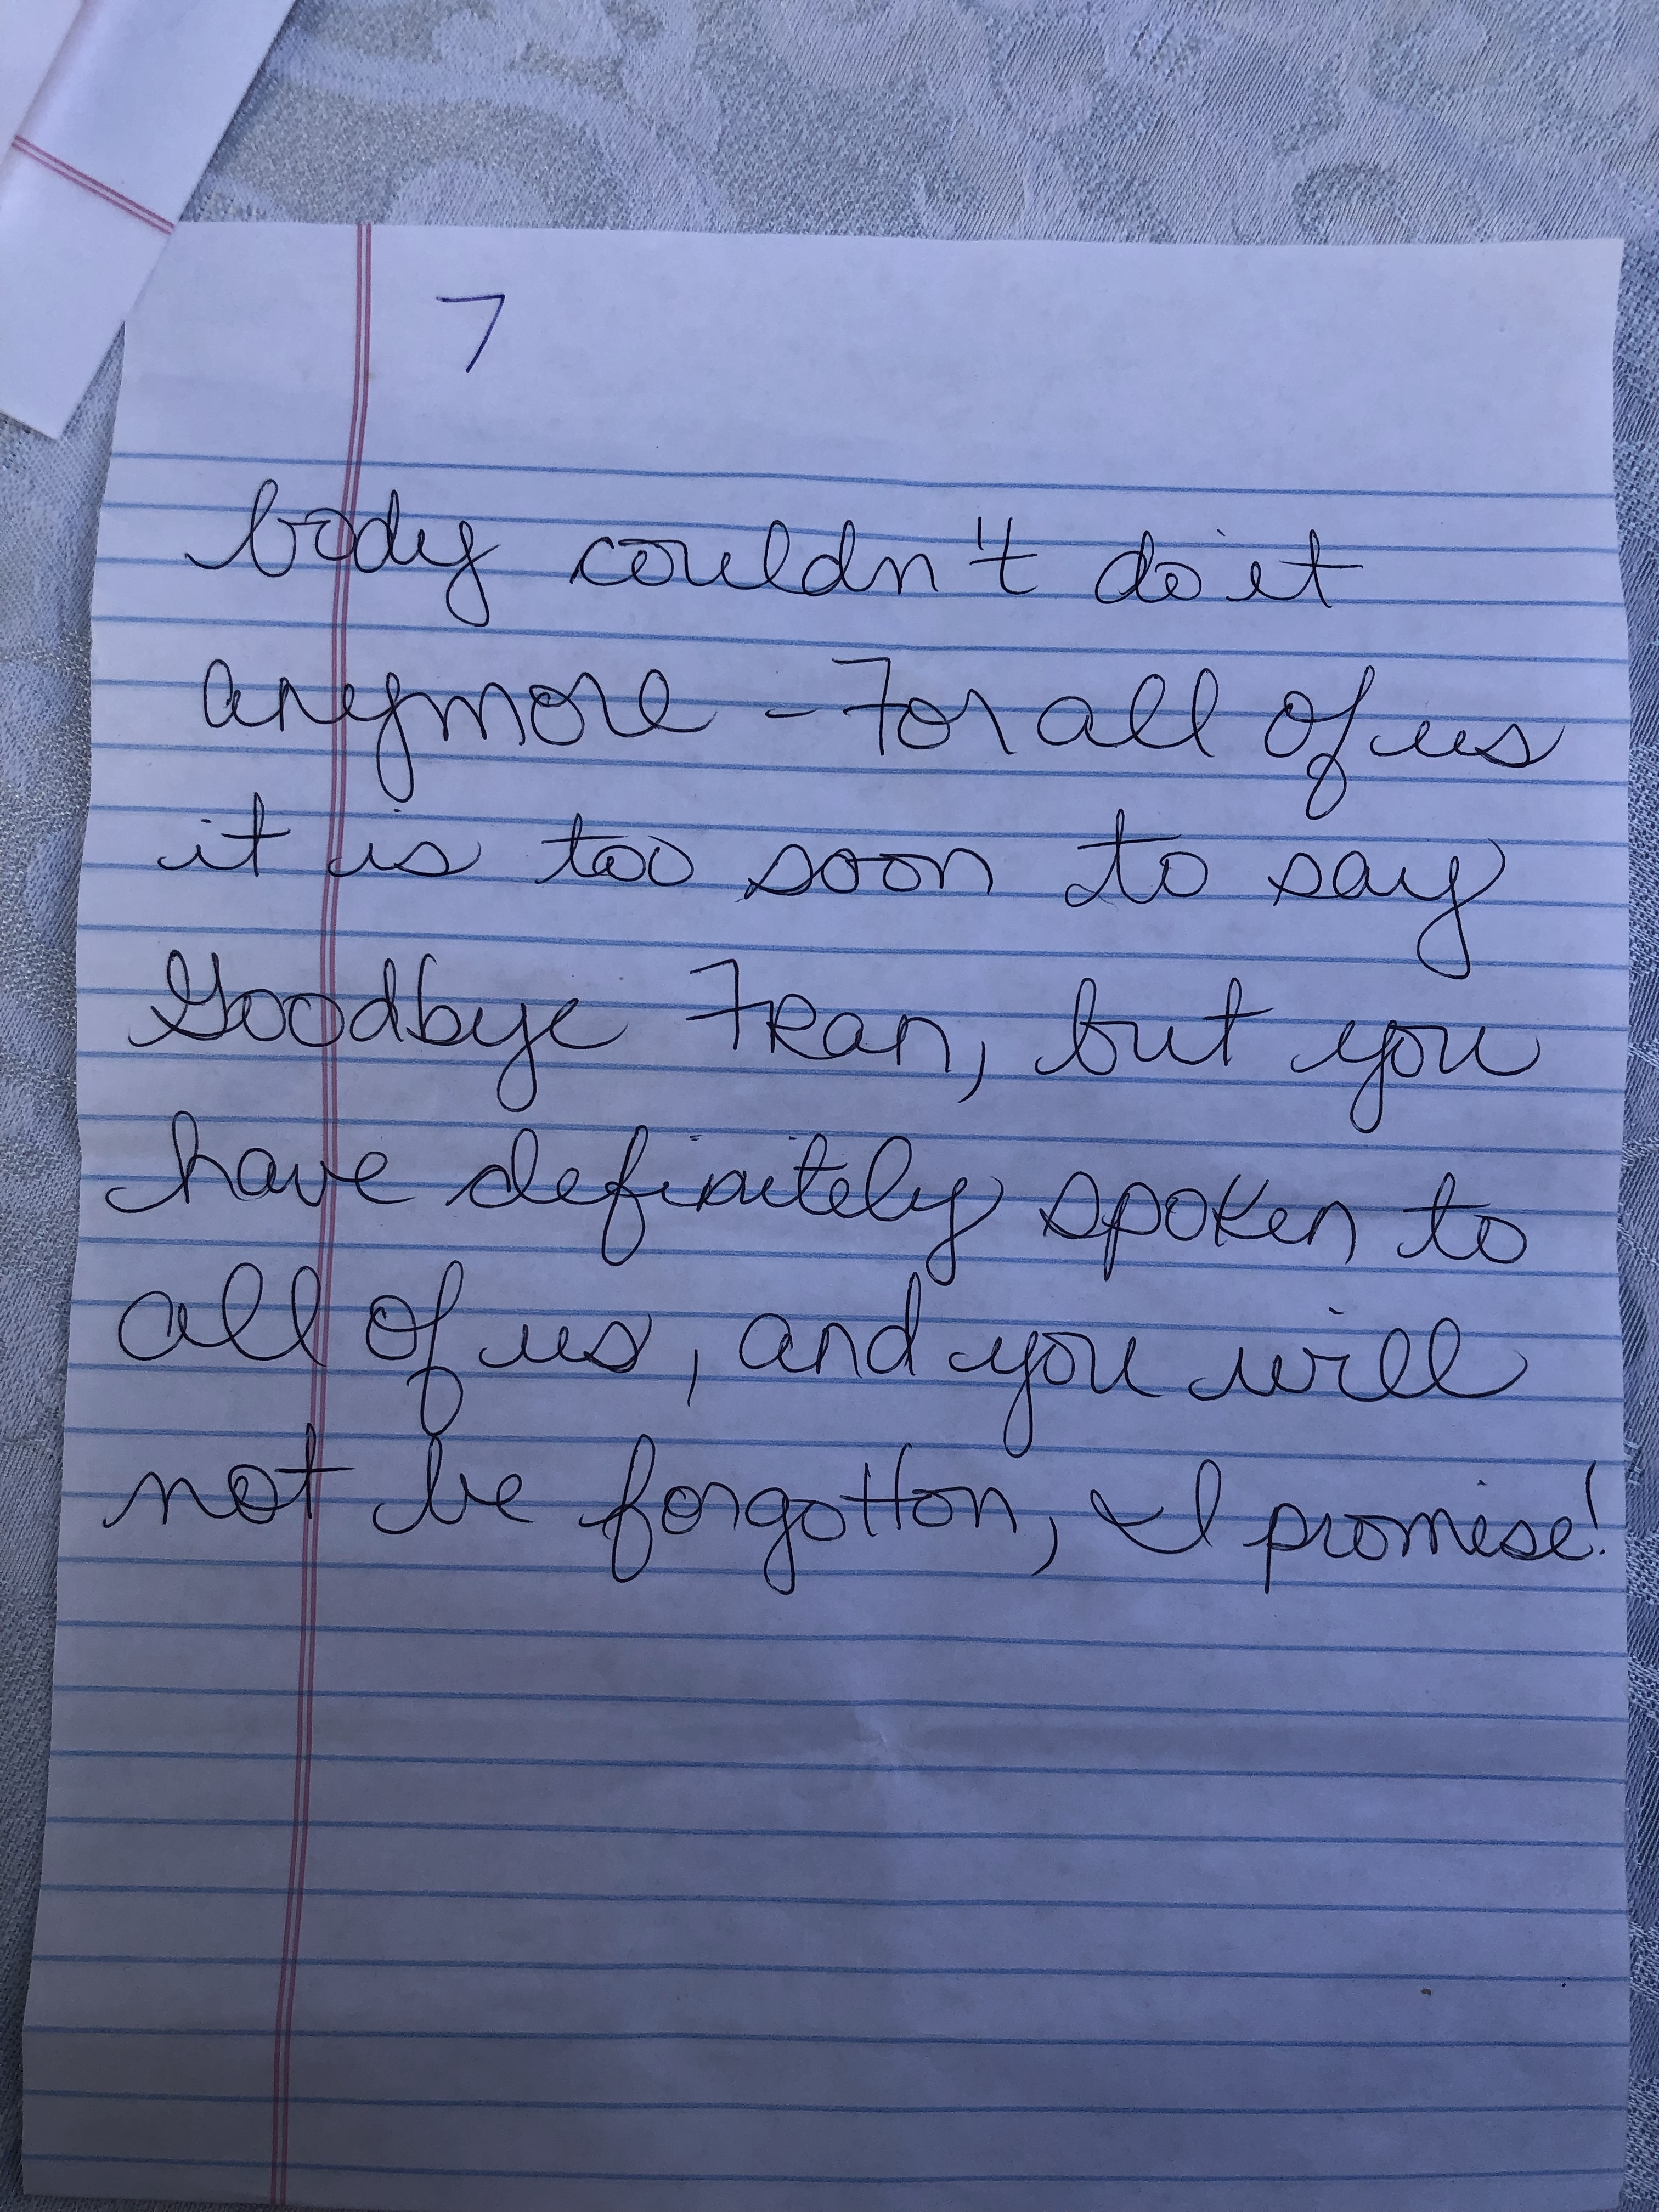 7
body couldn't do it
anymore - For all of us
it is too soon to say
Goodbye Fran, but you
have definitely spoken to
all of us, and you will
not be forgotton, I promise!